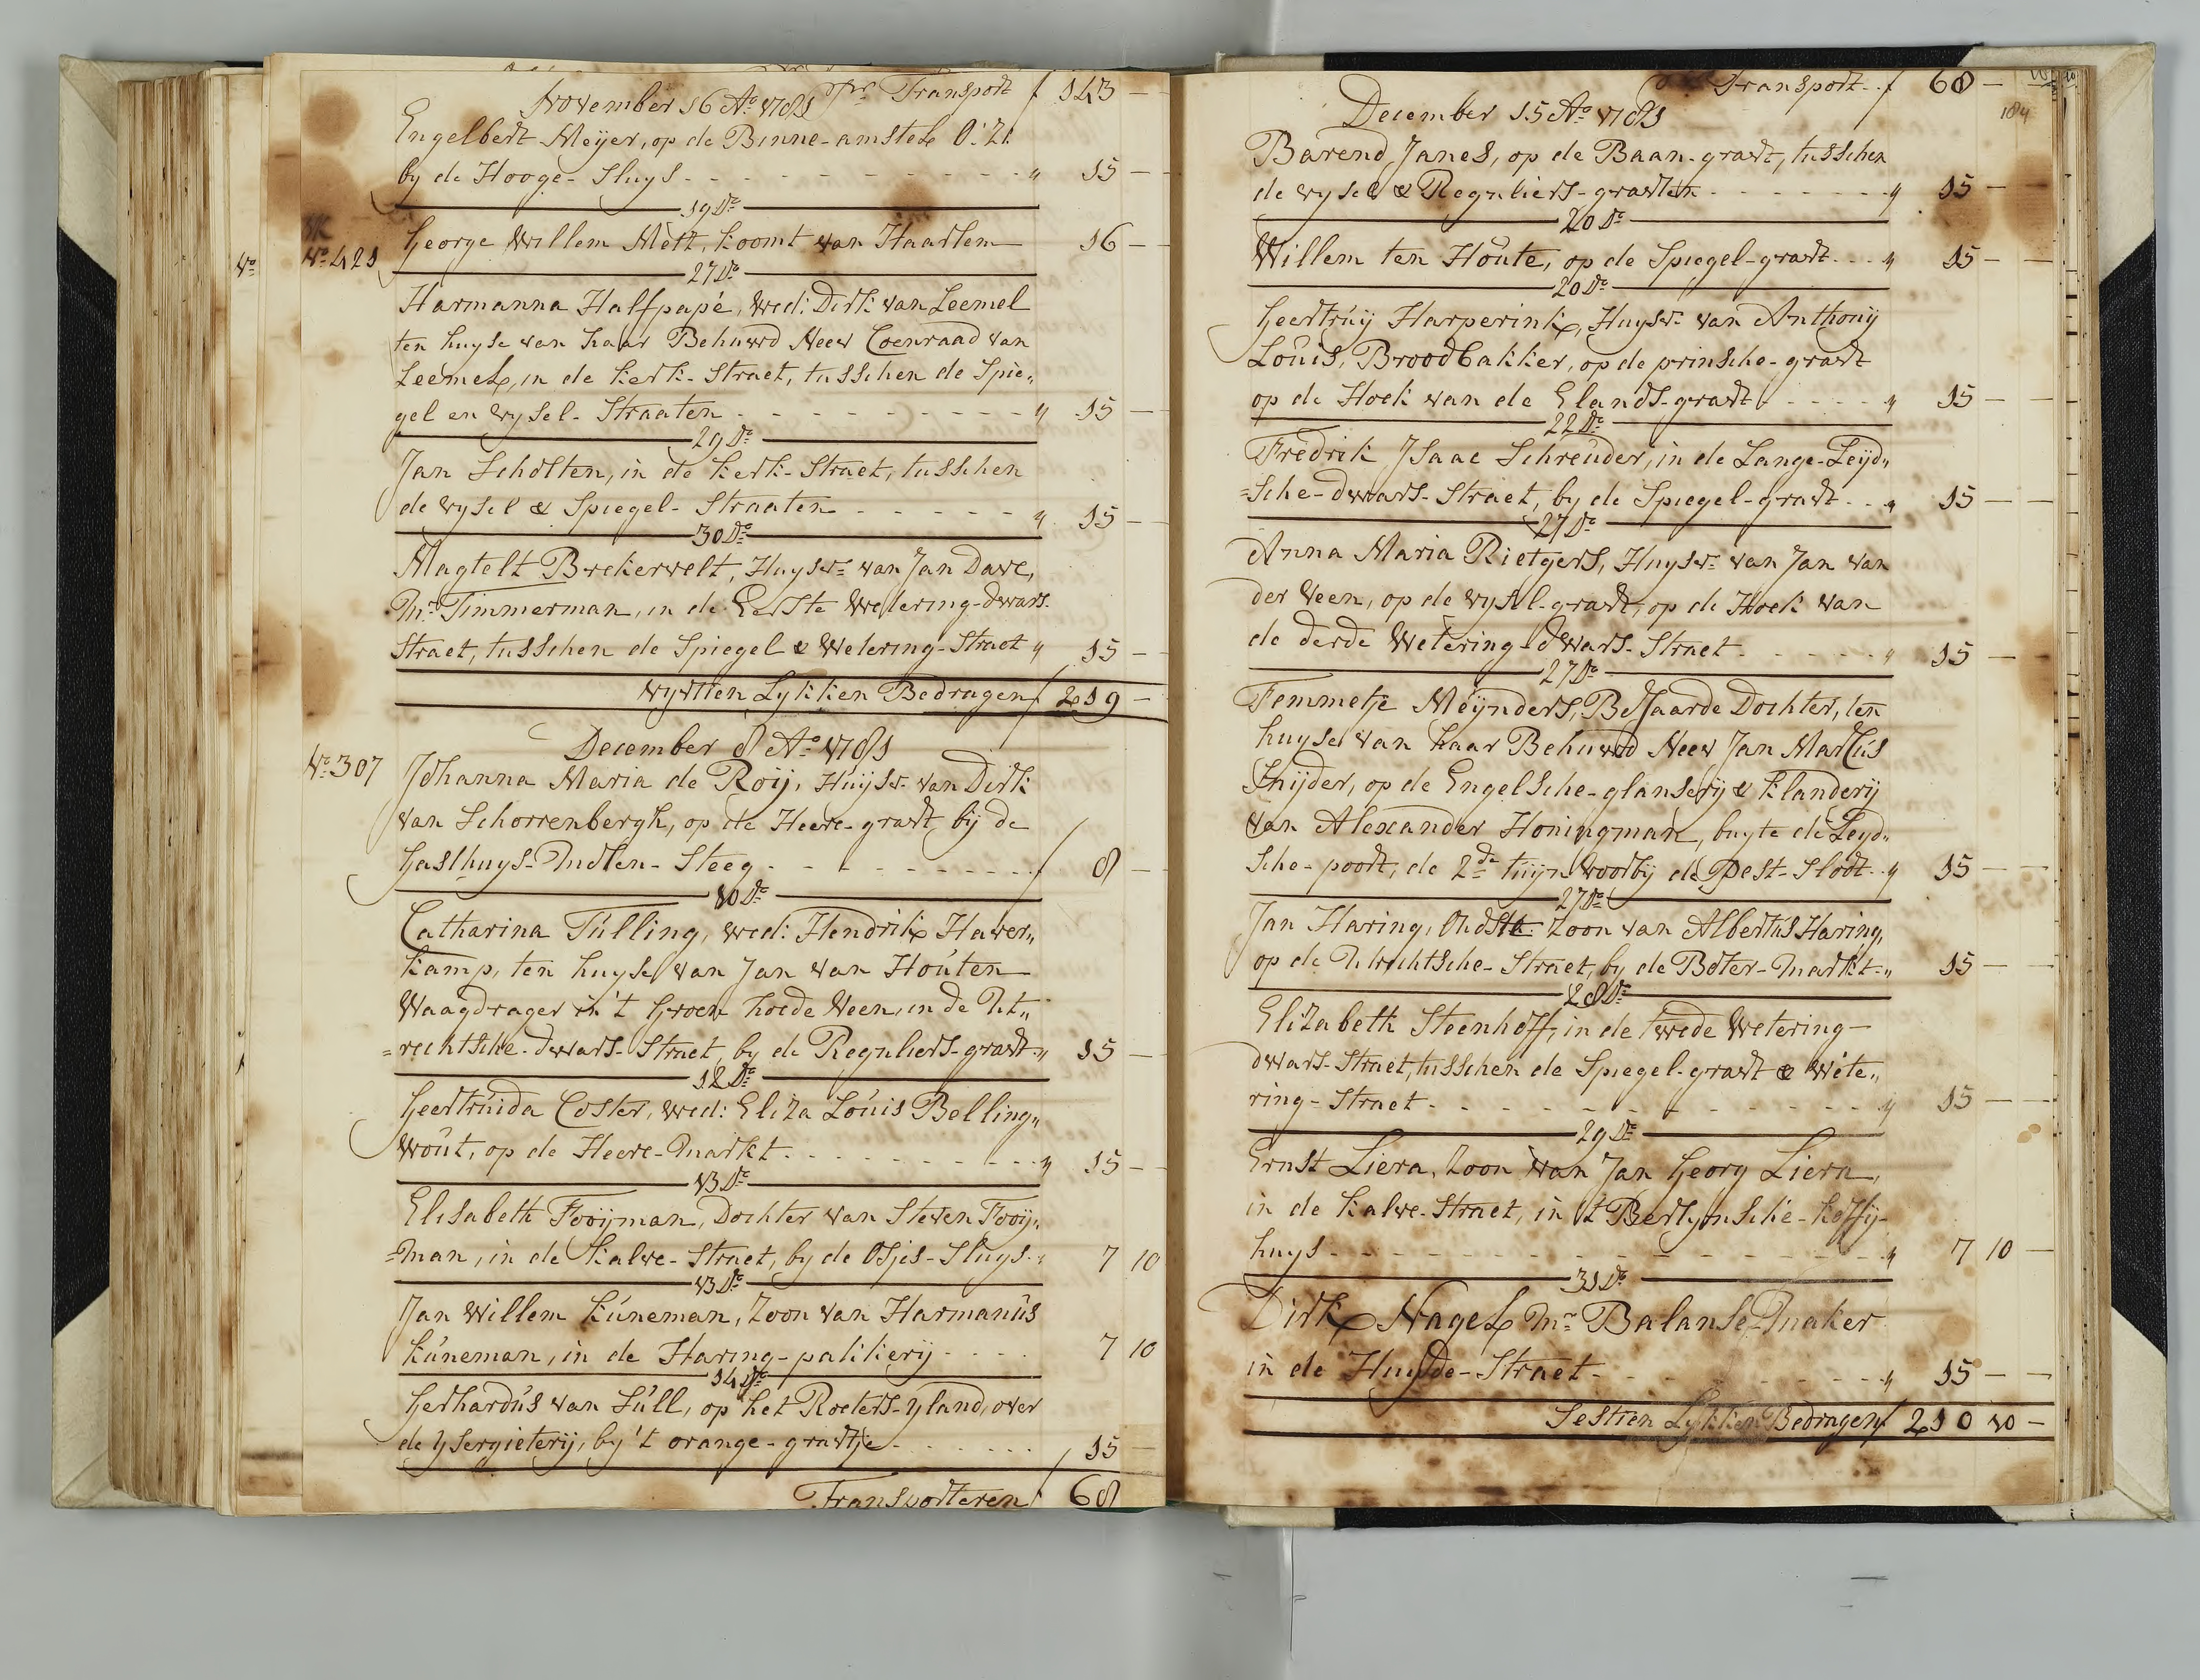 November 16 Aº 1781 Pr Transport f 143 -
Engelbert Meyer, op de Binne-amstel O:Z:
by de Hooge-Sluys - - - " 15 -
19 Dº
NK
Nº 421 George Willem Mett, koomt van Haarlem 16 -
27 Dº
Harmanna Halfpapé, wed: Dirk van Leemel
ten huyse van haar Behuwd Neev Coenraad van
Leemel, in de Kerk-Straet, tusschen de Spie„
gel en Vysel-Straaten - - - " 15 -
29 Dº
Jan Scholten, in de Kerk-Straet, tusschen
de Vysel & Spiegel-Straaten - - - " 15 -
30 Dº
Magtelt Brekervelt, Huysv: van Jan Dave,
Mr. Timmerman, in de Eerste Wetering-dwars-
Straet, tusschen de Spiegel & Wetering-Straet " 15 -
Vyvtien Lykken Bedragen f 219 -
December 8 Aº 1781
Nº 307 Johanna Maria de Roij, Huysv: van Dirk
van Schorrenbergh, op de Heere-gravt, bij de
Gasthuys-Molen-Steeg - - - f 8 -
10 Dº
Catharina Tulling, wed: Hendrik Haver„
kamp, ten huyse van Jan van Houten
Waagdrager in 't Groen hoede Veen, in de Ut„
=rechtsche-dwars-Straet, by de Reguliers-gravt " 15 -
12 Dº
Geertruida Coster, wed: Eliza Louis Belling„
wout, op de Heere-Markt - - - " 15 -
13 Dº
Elisabeth Fooyman, Dochter van Steven Fooy„
=man, in de Kalve-Straet, by de Osjes-Sluys " 7 10
13 Dº
Jan Willem Kuneman, Zoon van Harmanus
Kuneman, in de Haring-pakkerij - - - 7 10
14 Dº
Gerhardus van Sull, op het Roeters-yland, over
de Ysergieterij, by 't orange-gravtje - - - 15 -
Transporteren f 68
Transport f 68 -
184
December 15 Aº 1781
Barend Janes, op de Baan-gravt, tusschen
de Vysel & Reguliers-gravten - - - " 15 -
20 Dº
Willem ten Houte, op de Spiegel-gravt - - " 15 -
20 Dº
Geertruy Harperink, Huysv: van Anthony
Louis, Broodbakker, op de prinsche-gravt
op de Hoek van de Elands-gravt - - - " 15 -
22 Dº
Fredrik Isaac Schreuder, in de Lange-Leyd„
=sche-dwars-Straet, by de Spiegel-gravt - - " 15 -
27 Dº
Anna Maria Rietgers, Huysv: van Jan van
der Veen, op de Vysel-gravt, op de Hoek van
de derde Wetering-dwars-Straet - - - " 15 -
27 Dº
Femmetje Meynders, Bejaarde Dochter, ten
huyse van haar Behuwd Neev Jan Marcus
Snyder, op de Engelsche-glanserij & Klanderij
van Alexander Honingman, buyte de Leyd„
sche-poort, de 2de tuyn voorby de Pest-Sloot - " 15 -
27 Dº
Jan Haring, Oudste Zoon van Albertus Haring,
op de Utrechtsche-Straet, by de Boter-Markt - " 15 -
28 Dº
Elizabeth Steenhoff, in de twede Wetering-
dwars-Straet, tusschen de Spiegel-gravt & Wete„
ring-Straet - - - " 15 -
29 Dº
Ernst Liera, Zoon van Jan Georg Liera,
in de Kalve-Straet, in 't Berlynsche-Koffy-
huys - - - " 7 10 -
31 Dº
Dirk Nagel Mr. Balanse-Maker
in de Huyde-Straet - - - " 15 -
Sestien Lykken Bedragen f 210 10 -